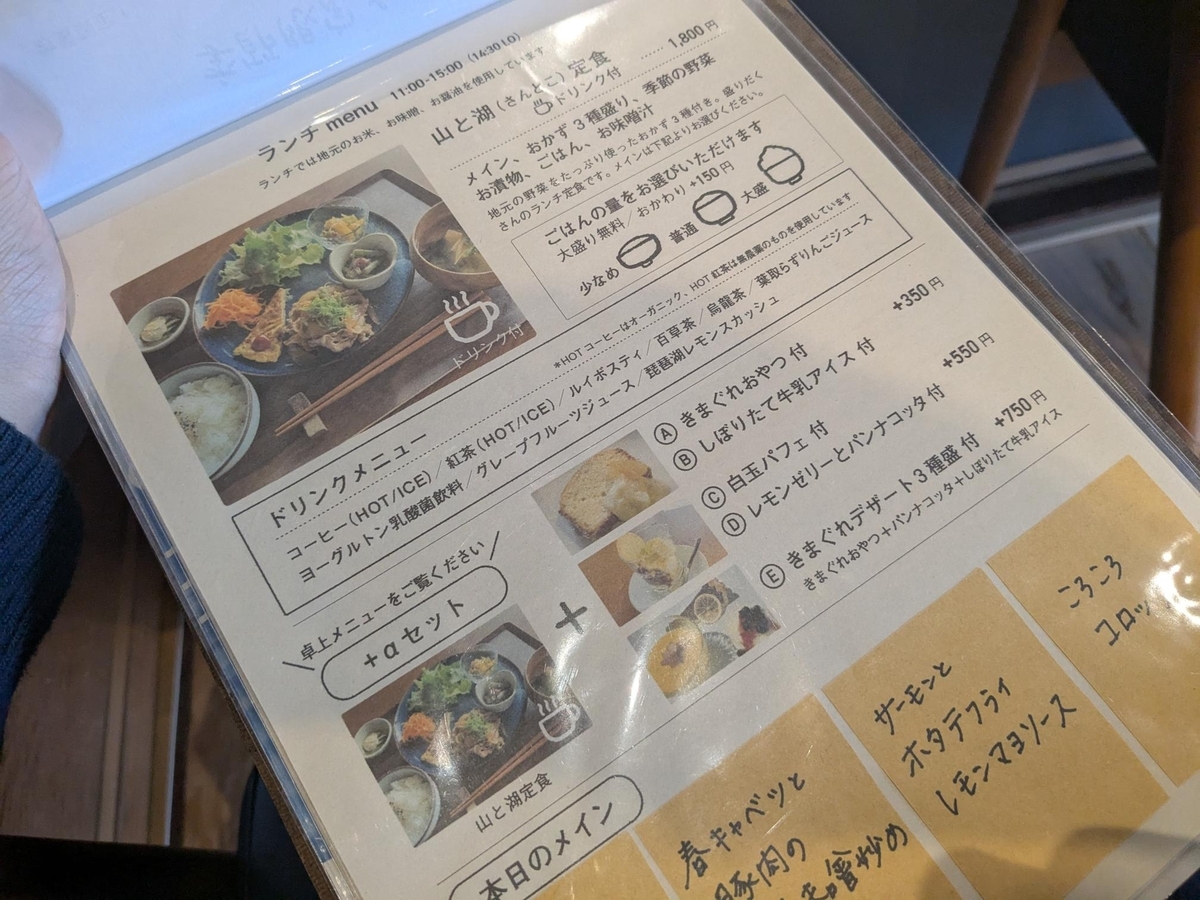 ランチ menu 11:00-15:00 (14:30 LO)
ランチでは地元のお米、お味噌、お醤油を使用しています
山と湖(さんとこ)定食 ...... 1,800円
ドリンク付
メイン、おかず3種盛り、季節の野菜
お漬物、ごはん、お味噌汁
地元の野菜をたっぷり使ったおかず3種付き。盛りだく
さんのランチ定食です。メインは下記よりお選びください。
ごはんの量をお選びいただけます
大盛り無料/おかわり+150円
少なめ 普通 大盛
ドリンク付
ドリンクメニュー
*HOTコーヒーはオーガニック、HOT紅茶は無農薬のものを使用しています
コーヒー(HOT/ICE)/紅茶(HOT/ICE)/ルイボスティ/百草茶/烏龍茶/葉取らずりんごジュース
ヨーグルトン乳酸菌飲料/グレープフルーツジュース/琵琶湖レモンスカッシュ
\卓上メニューをご覧ください/
+αセット
山と湖定食
+
Ⓐ きまぐれおやつ 付
Ⓑ しぼりたて牛乳アイス 付
+350円
Ⓒ 白玉パフェ 付
Ⓓ レモンゼリーとパンナコッタ付
+550円
Ⓔ きまぐれデザート3種盛 付 +750円
きまぐれおやつ+パンナコッタ+しぼりたて牛乳アイス
本日のメイン
春キャベツと
豚肉の
炒め
サーモンと
ホタテフライ
レモンマヨソース
ころころ
コロッ